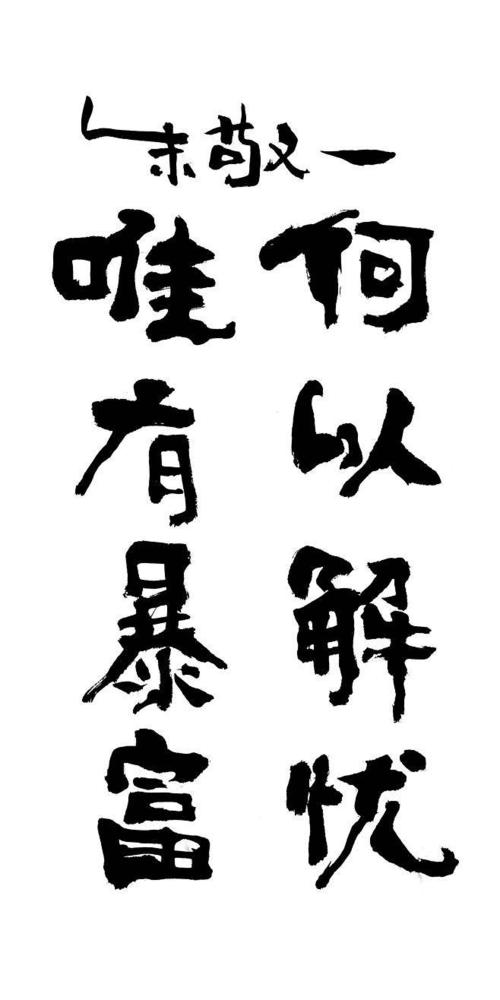 朱敬一
何以解忧
唯有暴富